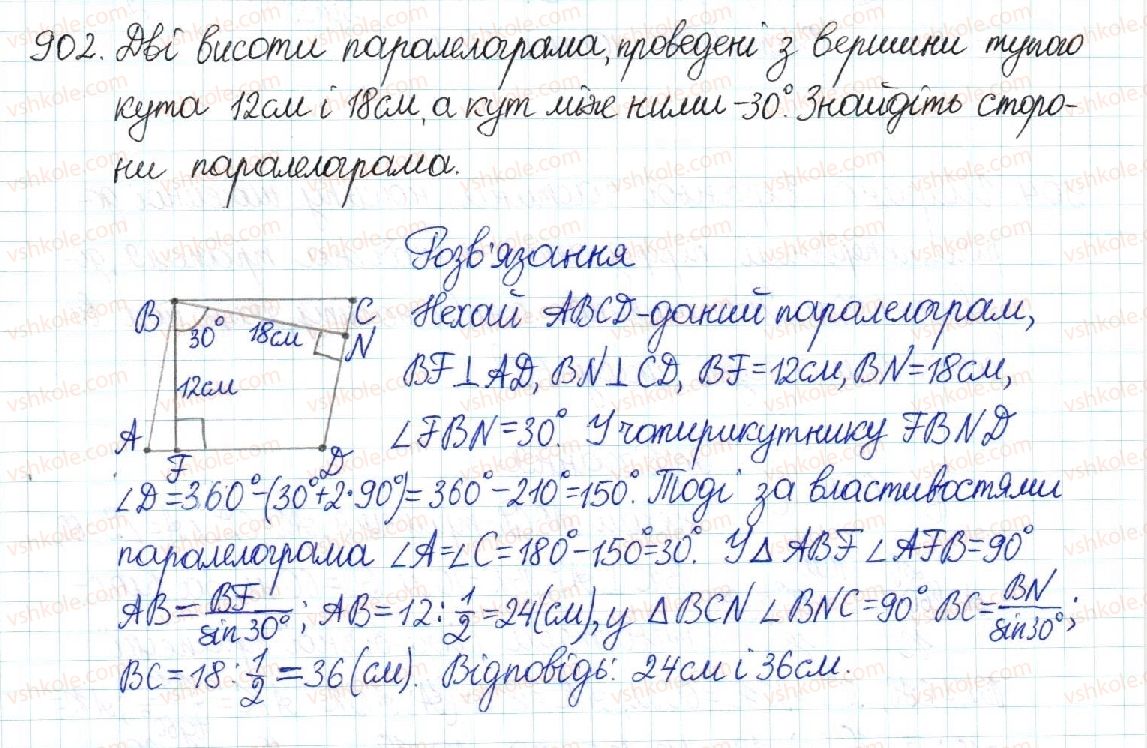 902. Дві висоти паралелограма, проведені з вершини тупого
кута 12см і 18см, а кут між ними - 30°. Знайдіть сторо-
ни паралелограма.
Розв'язання
B C
30° 18см N
12см
A F D
Нехай ABCD - даний паралелограм,
BF⊥AD, BN⊥CD, BF=12см, BN=18см,
∠FBN=30°. У чотирикутнику FBND
∠D=360°-(30°+2·90°)=360°-210°=150°. Тоді за властивостями
паралелограма ∠A=∠C=180°-150°=30°. У △ABF ∠AFB=90°
AB=BF/sin30°; AB=12:1/2=24(см), у △BCN ∠BNC=90° BC=BN/sin30°;
BC=18:1/2=36(см). Відповідь: 24см і 36см.